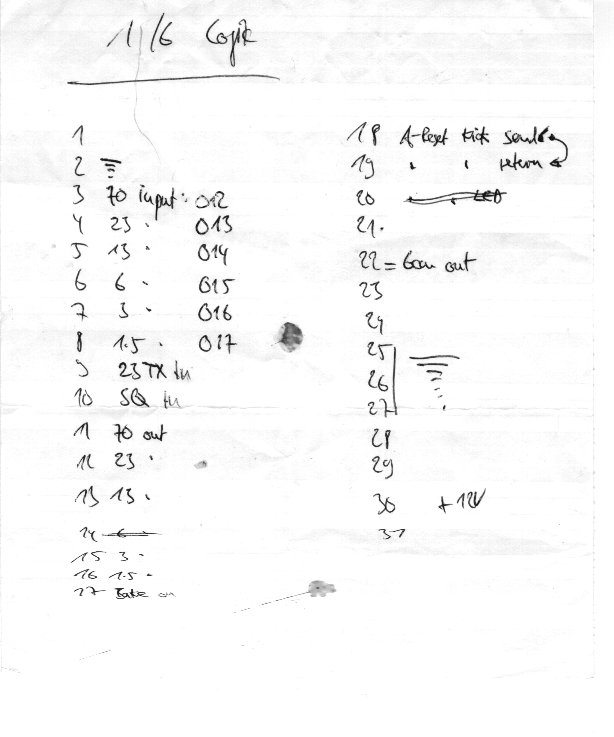 11/6 Logik
1
2
3 70 input: 012
4 23 " 013
5 13 " 014
6 6 " 015
7 3 " 016
8 1.5 " 017
9 23 TX in
10 SQ in
11 70 out
12 23 "
13 13 "
14 6
15 3 "
16 1.5 "
17
18 A-Reset Kick send
19 " " return
20 LED
21.
22 = 6cm out
23
24
25
26
27
28
29
30 +12V
31